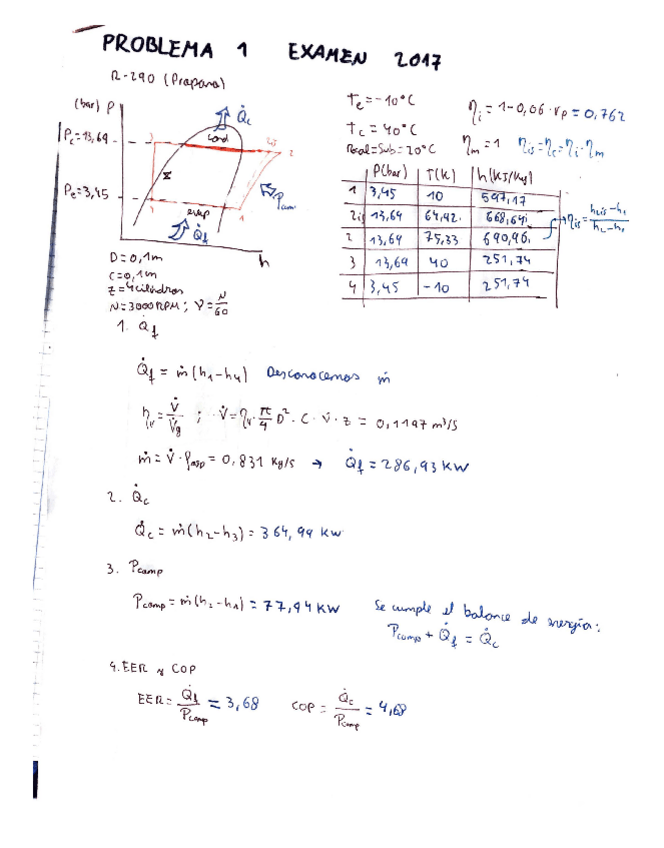 PROBLEMA 1 EXAMEN 2017
R-290 (Propano)
(bar) P
Q̇c
Pc=13,64
cond
3
2is
2
Pe=3,45
evap
1
Q̇f
h
Te=-10°C
Tc=40°C
Recal=Sub=20°C
ηi=1-0,06·rp=0,762
ηm=1 ηis=ηc=ηi·ηm
P(bar) T(K) h(KJ/Kg)
1 3,45 10 597,17
2is 13,64 64,92 668,64
2 13,64 75,33 690,96
3 13,64 40 251,74
4 3,45 -10 251,74
ηis=(h2is-h1)/(h2-h1)
D=0,1m
C=0,1m
Z=4 cilindros
N=3000 RPM; V=N/60
1. Q̇f
Q̇f = ṁ(h1-h4) Desconocemos ṁ
ηv=V̇/V̇g ; V̇=ηv·π/4 D²·C·V·Z = 0,1197 m³/s
ṁ=V̇·ρasp=0,831 Kg/s → Q̇f=286,93 KW
2. Q̇c
Q̇c = ṁ(h2-h3)=364,99 KW
3. Pcomp
Pcomp=ṁ(h2-h1)=77,94 KW
Se cumple el balance de energía:
Pcomp+Q̇f=Q̇c
4. EER y COP
EER=Q̇f/Pcomp=3,68 COP=Q̇c/Pcomp=4,68